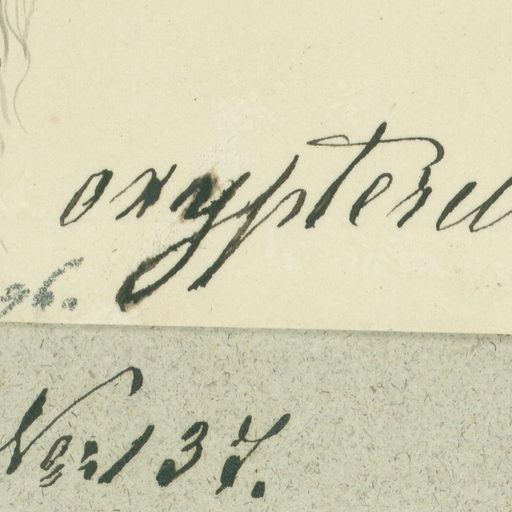 oxypteru
96.
No: 137.